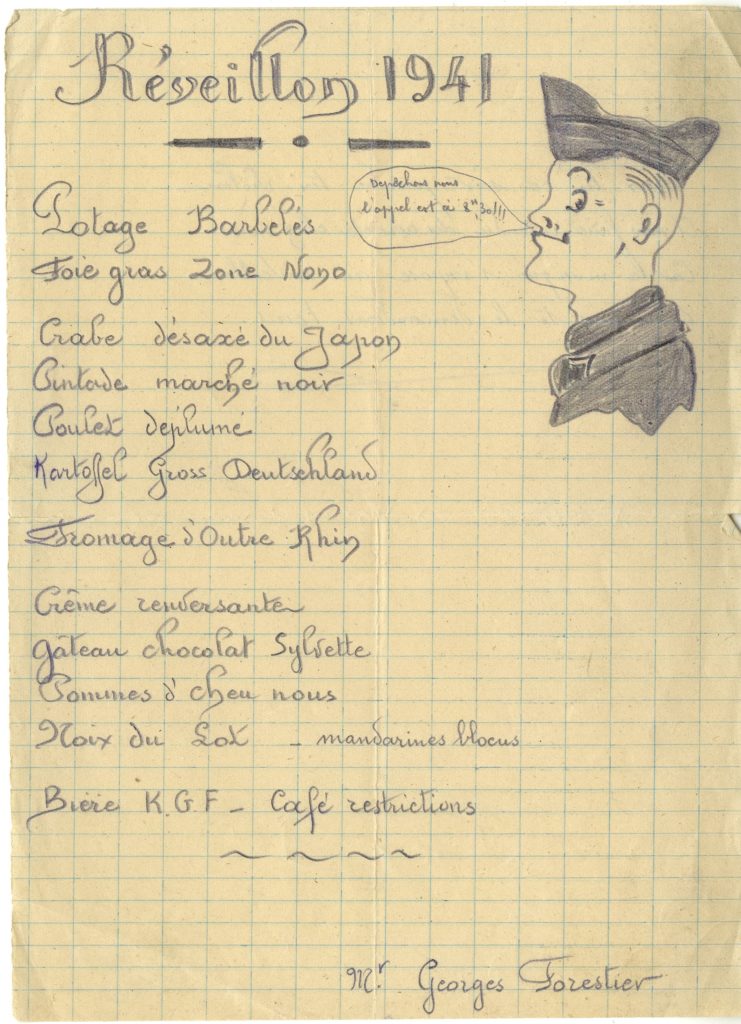 Réveillon 1941
Depêchons nous
l'appel est à 8ʰ,30!!!
Potage Barbelés
Foie gras Zone Nono
Crabe désaxé du Japon
Pintade marché noir
Poulet déplumé
Kartoffel Gross Deutschland
Fromage d'Outre Rhin
Crême renversante
gâteau chocolat Sylvette
Pommes d'cheu nous
Noix du Lot - mandarines blocus
Bière K.G.F - Café restrictions
Mr. Georges Forestier